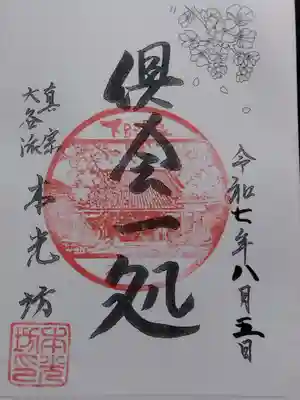 令和七年八月五日
倶会一処
真宗
大谷派
本光坊